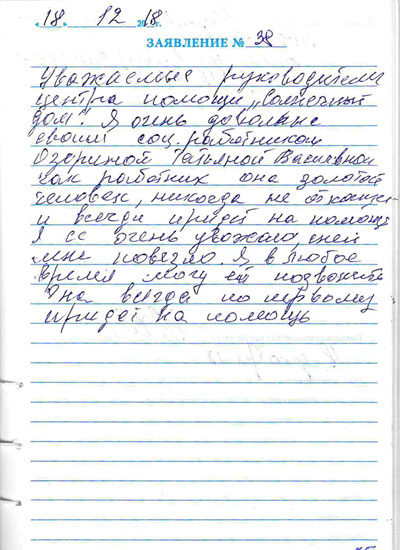 "18" 12 2018 г.
ЗАЯВЛЕНИЕ № 38
Уважаемые руководители
центра помощи „Солнечный
дом". Я очень довольна
своим соц. работником
Озериной Татьяной
как работник она золотой
человек, никогда не откажет
и всегда придет на помощь
Я её очень уважаю, с ней
мне повезло. Я в любое
время могу ей позвонить
Она всегда по первому
придет на помощь